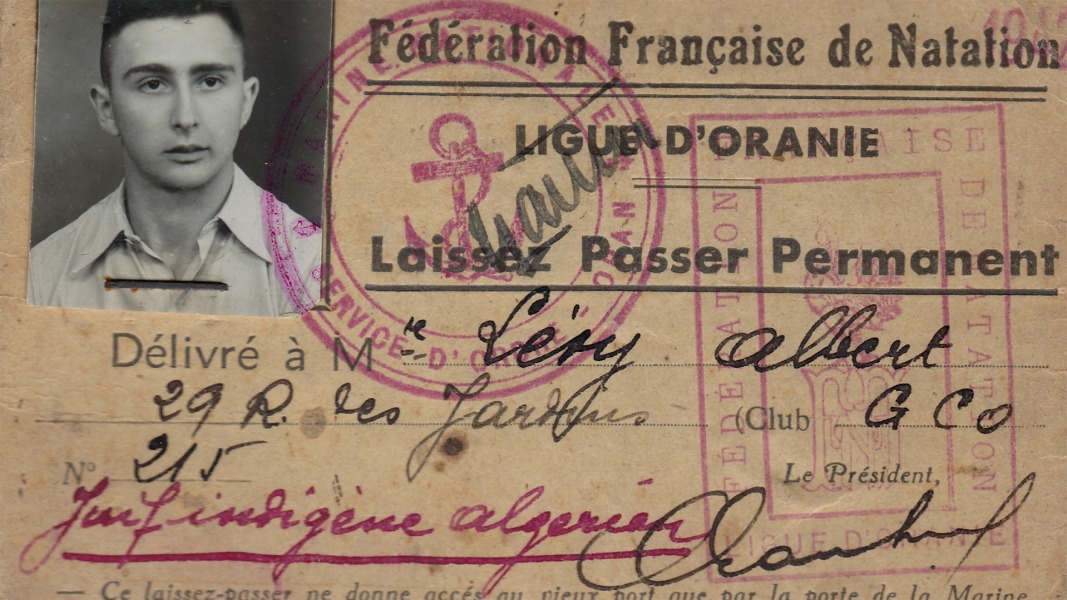 Fédération Française de Natation
LIGUE D'ORANIE
Laissez Passer Permanent
Délivré à M re Lévy Albert
29 R. des Jardins (Club G C O
N° 215 Le Président,
Juif indigène algérien
— Ce laissez-passer ne donne accés au vieux port que par la porte de la Marine
MARINE NATIONALE
SERVICE D'ORDRE
ORAN
FÉDÉRATION FRANÇAISE DE NATATION
LIGUE D'ORANIE